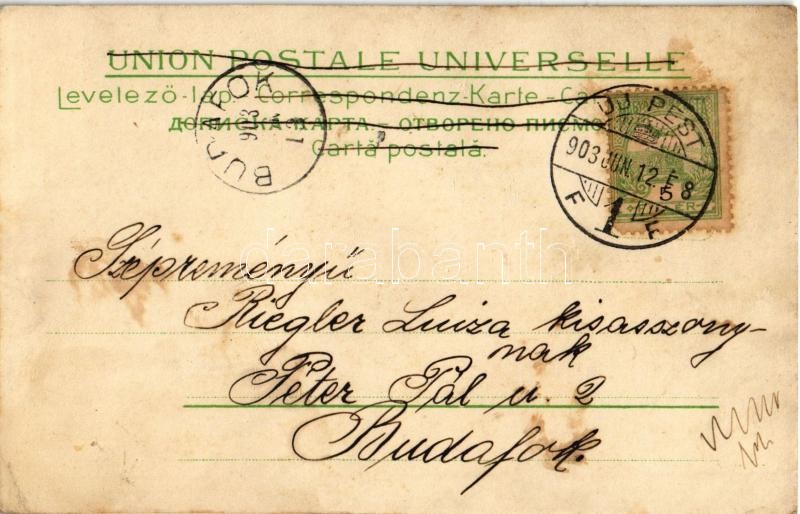 UNION POSTALE UNIVERSELLE
Levelező-lap.- Correspondenz-Karte.-Ca
ДОПИСНА КАРТА. – ОТВОРЕНО ПИСМО
Cartă postală.
BUDAFOK
903
UJ PEST
903 JUN. 12. E 8
5
F 1 F
darabanth
Szépreményű
Riegler Luiza kisasszony-
nak
Péter Pál u. 2
Budafok.